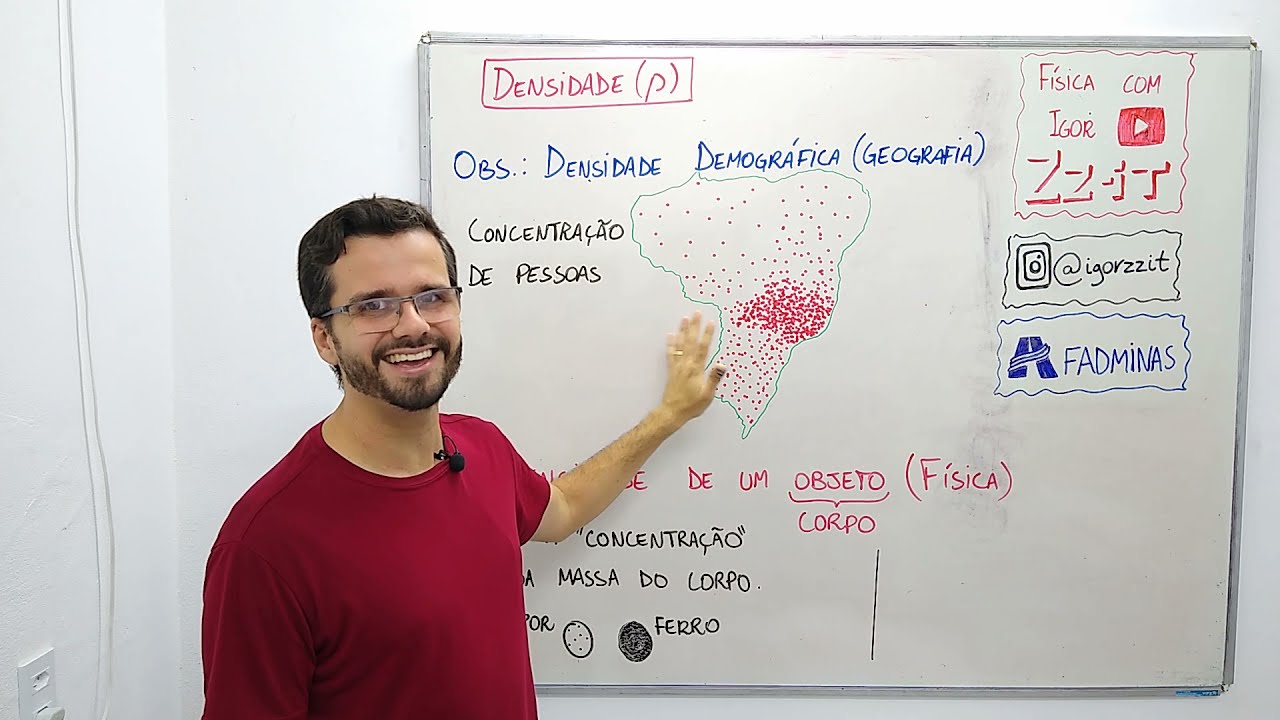 DENSIDADE (ρ)
OBS.: DENSIDADE DEMOGRÁFICA (GEOGRAFIA)
CONCENTRAÇÃO
DE PESSOAS
DE UM OBJETO (FÍSICA)
CORPO
"CONCENTRAÇÃO"
DA MASSA DO CORPO.
FERRO
FÍSICA COM
IGOR
ZZIT
@igorzzit
FADMINAS